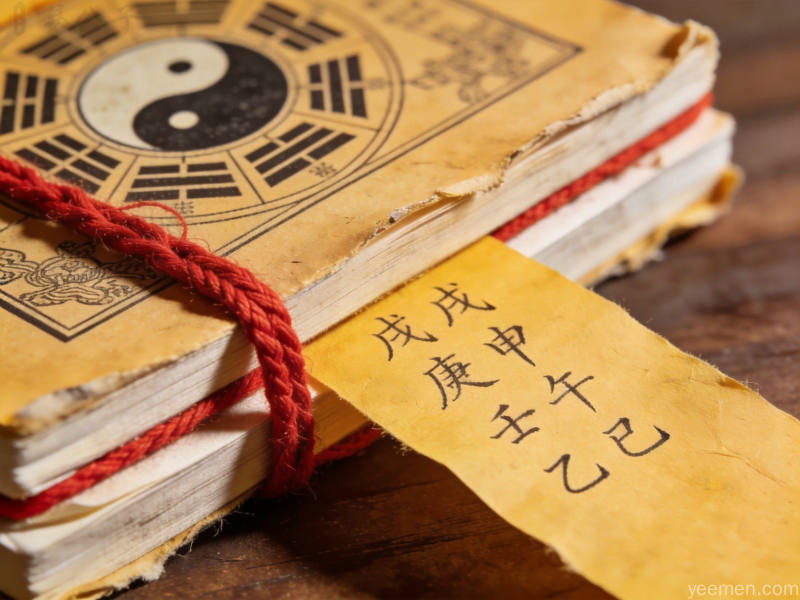 戊戌
庚申
壬午
乙巳
yeemen.com